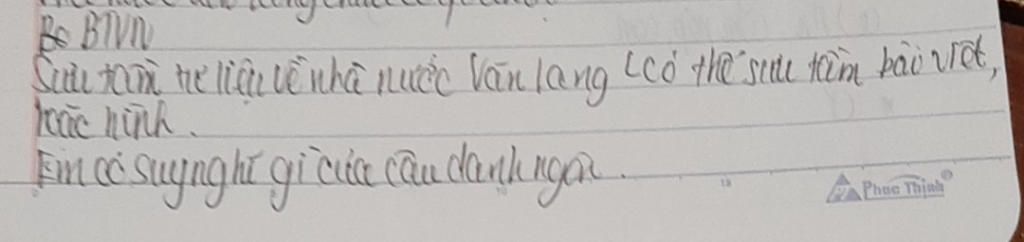 Bo BTVN
Sưu tầm tư liệu về nhà nước Văn lang (có thể sưu tầm bài viết,
hoặc hình.
Em có suy nghĩ gì của câu danh ngôn.
Phuc Thinh